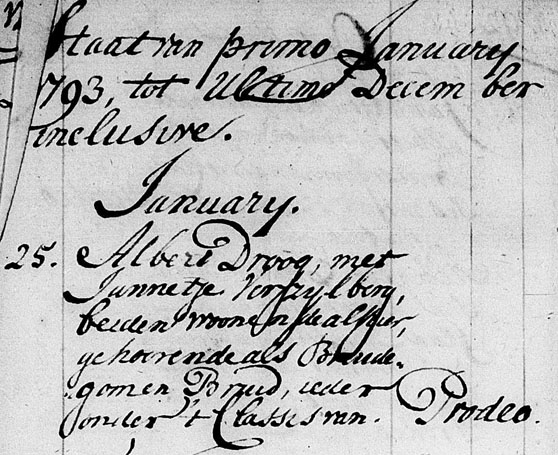 Staat van primo January
793, tot Ultimo December
inclusive.
January.
25. Albert Droog, met
Jannetje Verzylberg,
beiden woonende alhier,
gehoorende als Bruide-
gom en Bruid, ieder
onder 't Classis van. Prodeo.